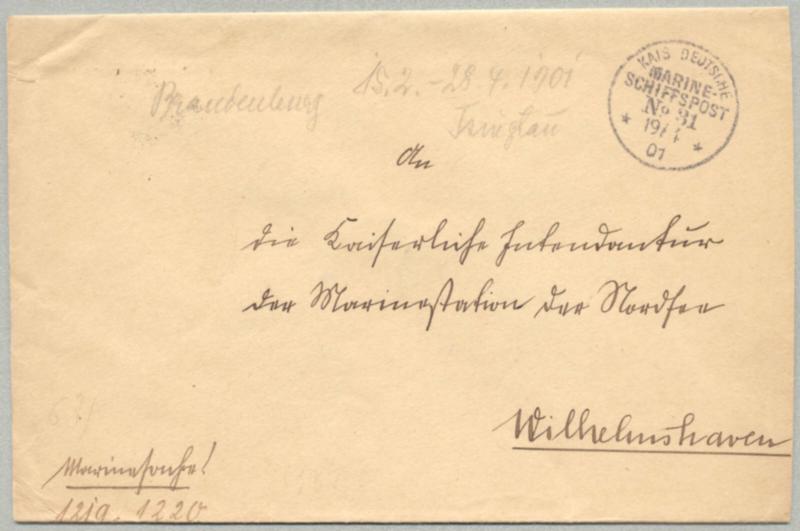 Brandenburg 15.2.-28.4.1901
Tsingtau
KAIS DEUTSCHE
MARINE-
SCHIFFSPOST
No 31
* 19/4 *
01
An
die Kaiserliche Intendantur
der Marinestation der Nordsee
Wilhelmshaven
Marinesache!
1219. 1220